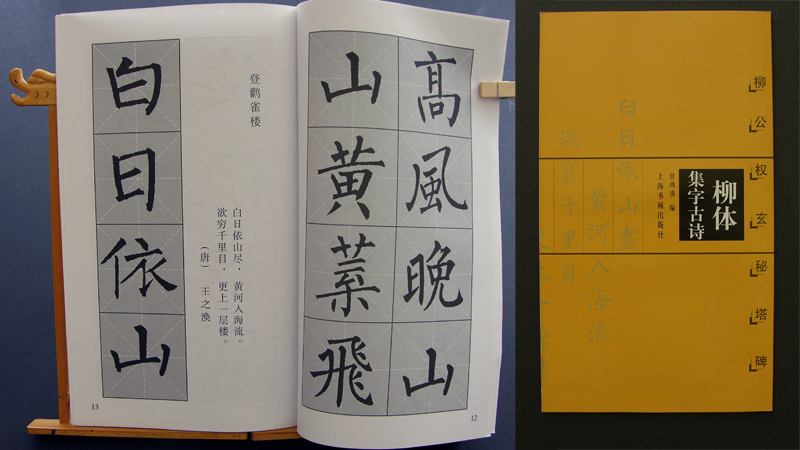 髙風晚山
山黄葉飛
12
登鹳雀楼
白日依山尽，黄河入海流。
欲穷千里目，更上一层楼。
（唐） 王之涣
白日依山
13
柳公权玄秘塔碑
柳体
集字古诗
编
上海书画出版社
白日依山盡
黄河入海流
欲窮千里目